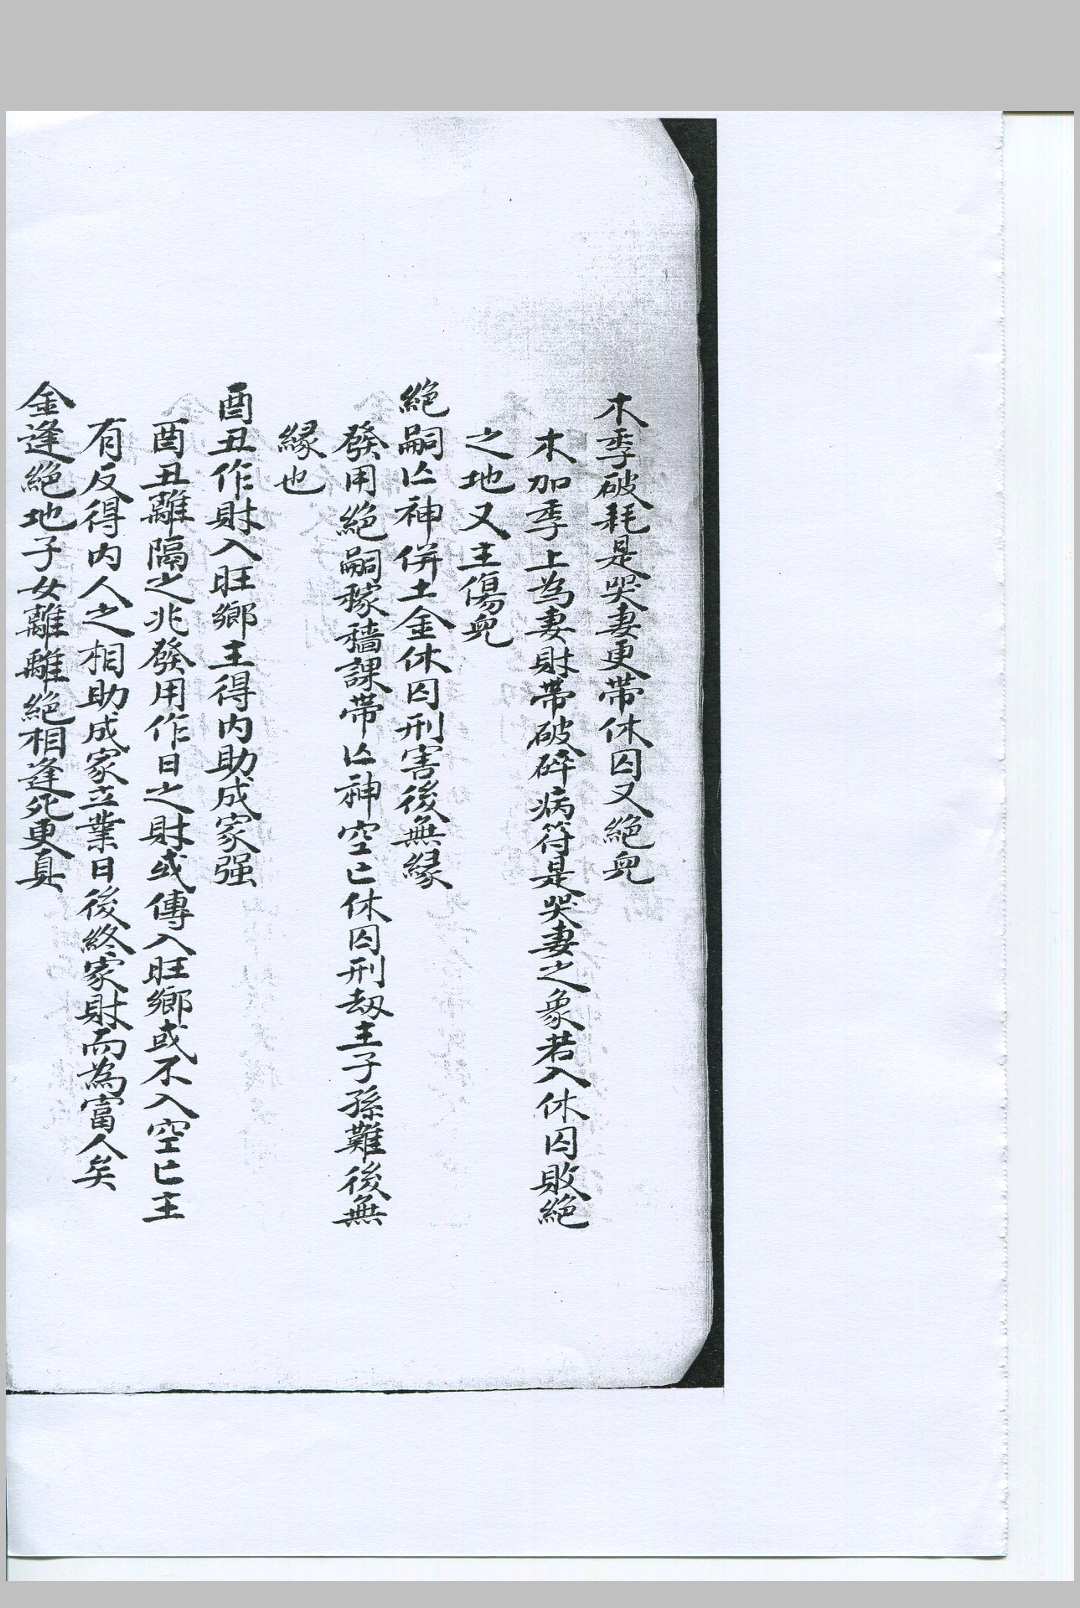 木季破耗是哭妻更帶休囚又絕兒
木加季上為妻財帶破碎病符是哭妻之象若入休囚敗絕
之地又主傷兒
絕嗣亡神併土金休囚刑害後無緣
發用絕嗣稼穡課帶亡神空亡休囚刑刼主子孫難後無
緣也
酉丑作財入旺鄉主得內助成家强
酉丑離隔之兆發用作日之財或傳入旺鄉或不入空亡主
有反得內人之相助成家立業日後終家財而為富人矣
金逢絕地子女離離絕相逢死更真